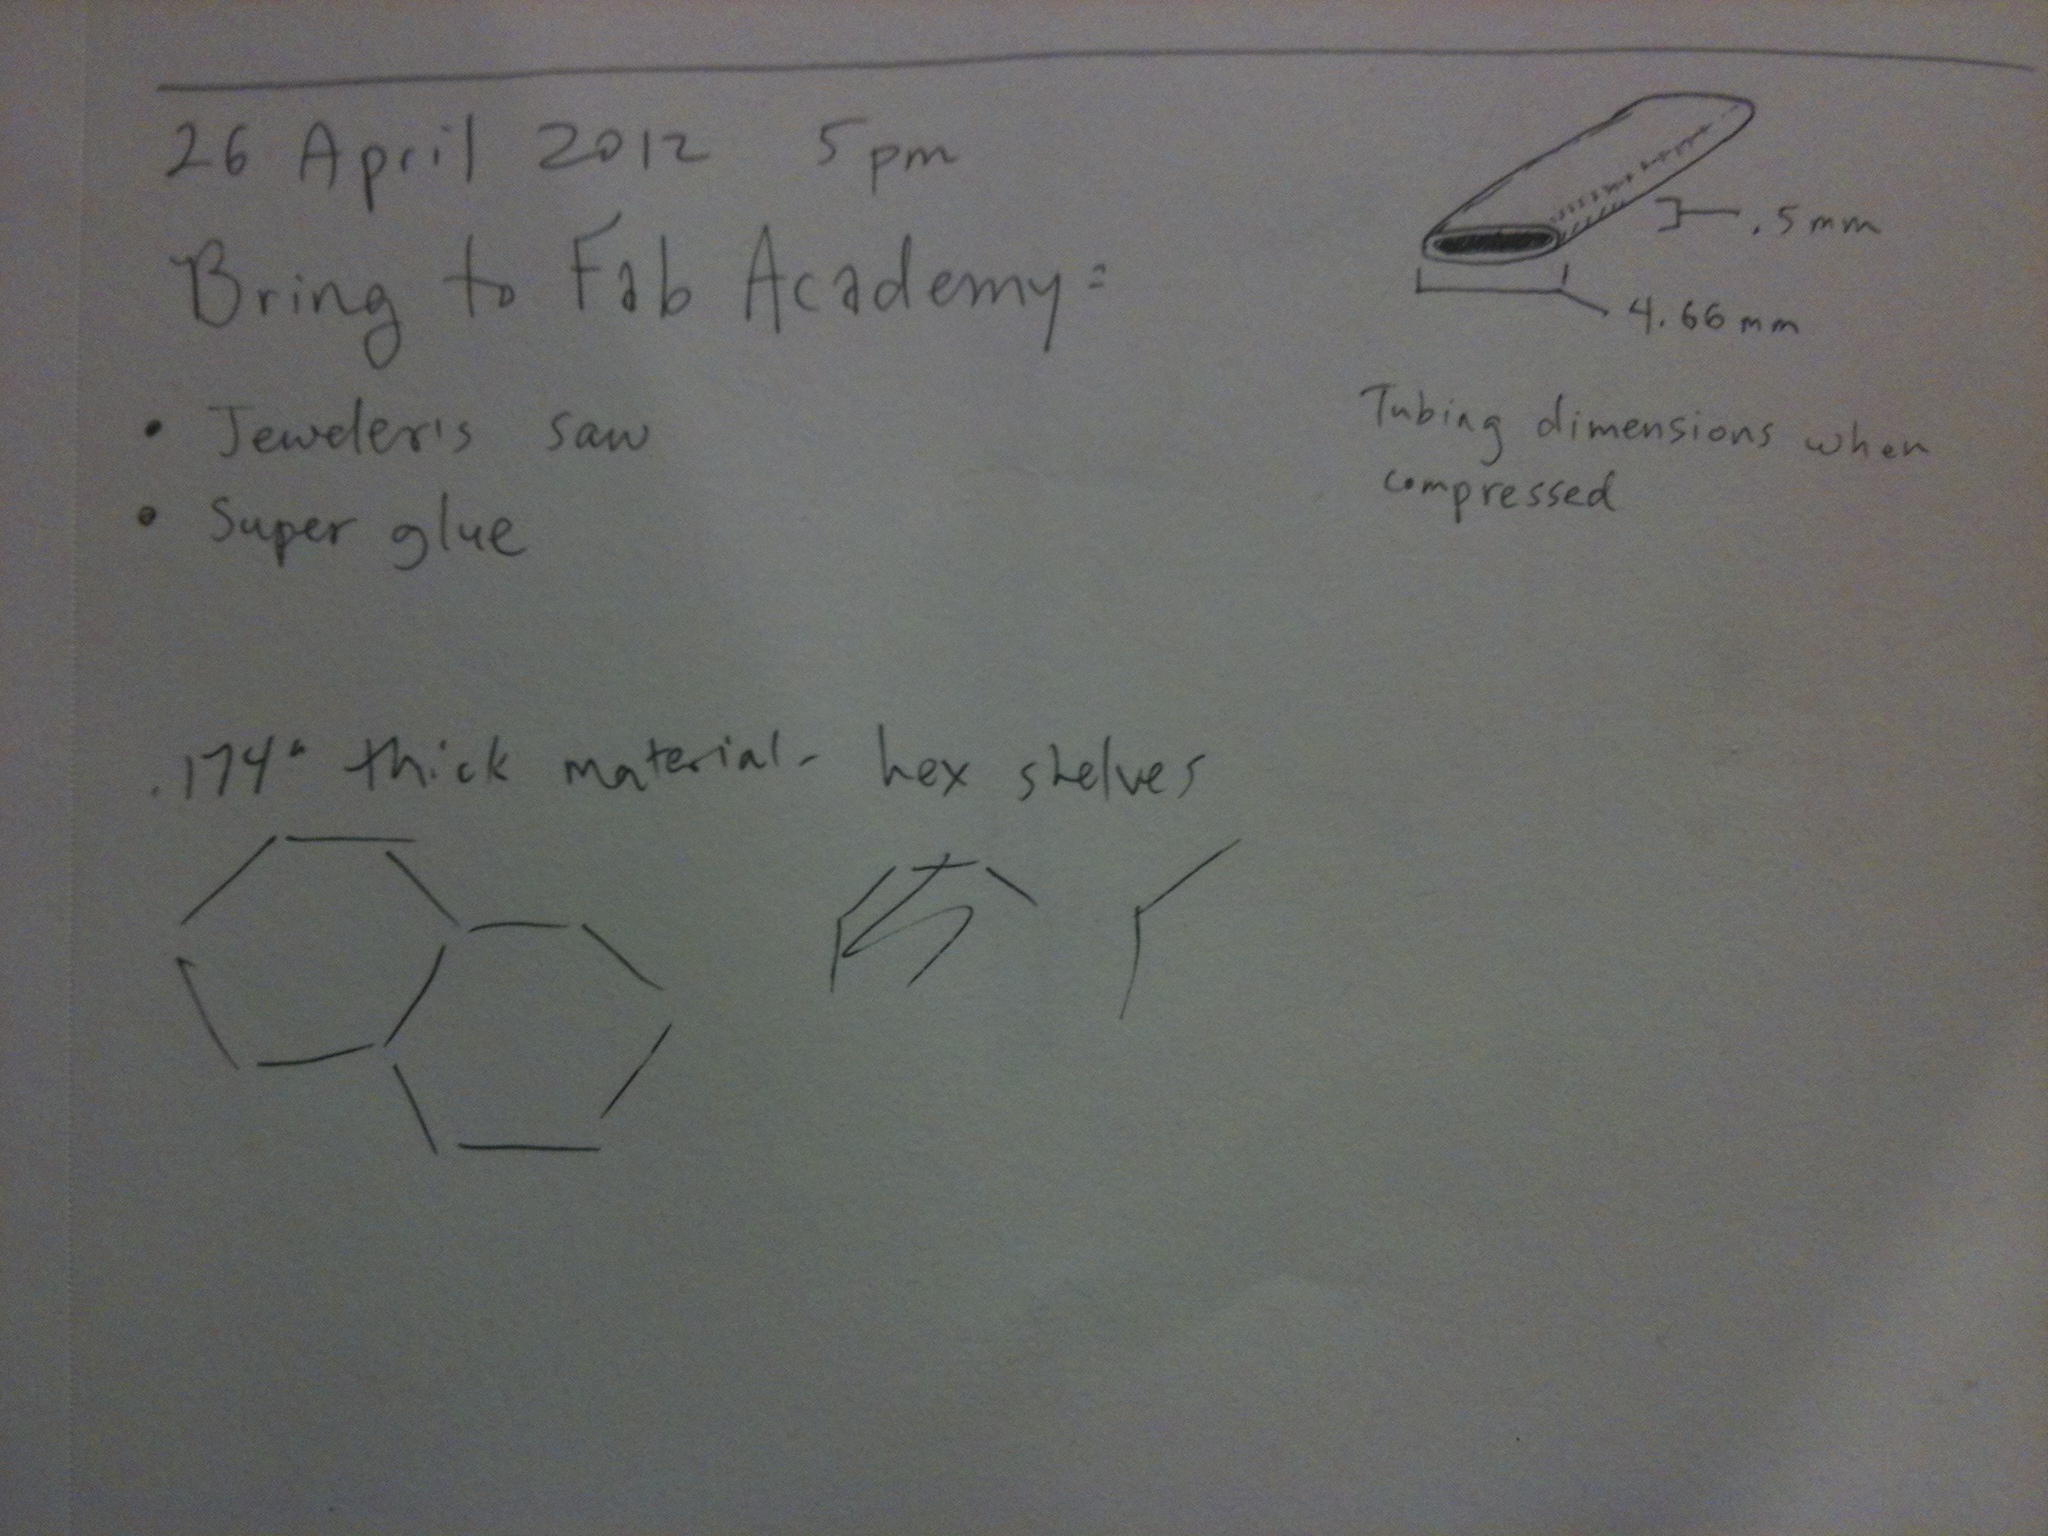 26 April 2012 5pm
Bring to Fab Academy:
• Jeweler's saw
• Super glue
.5mm
4.66mm
Tubing dimensions when
compressed
.174" thick material - hex shelves